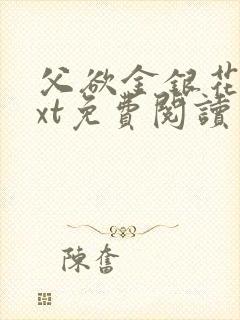 父欲金銀花
xt免費閱讀
陳奮